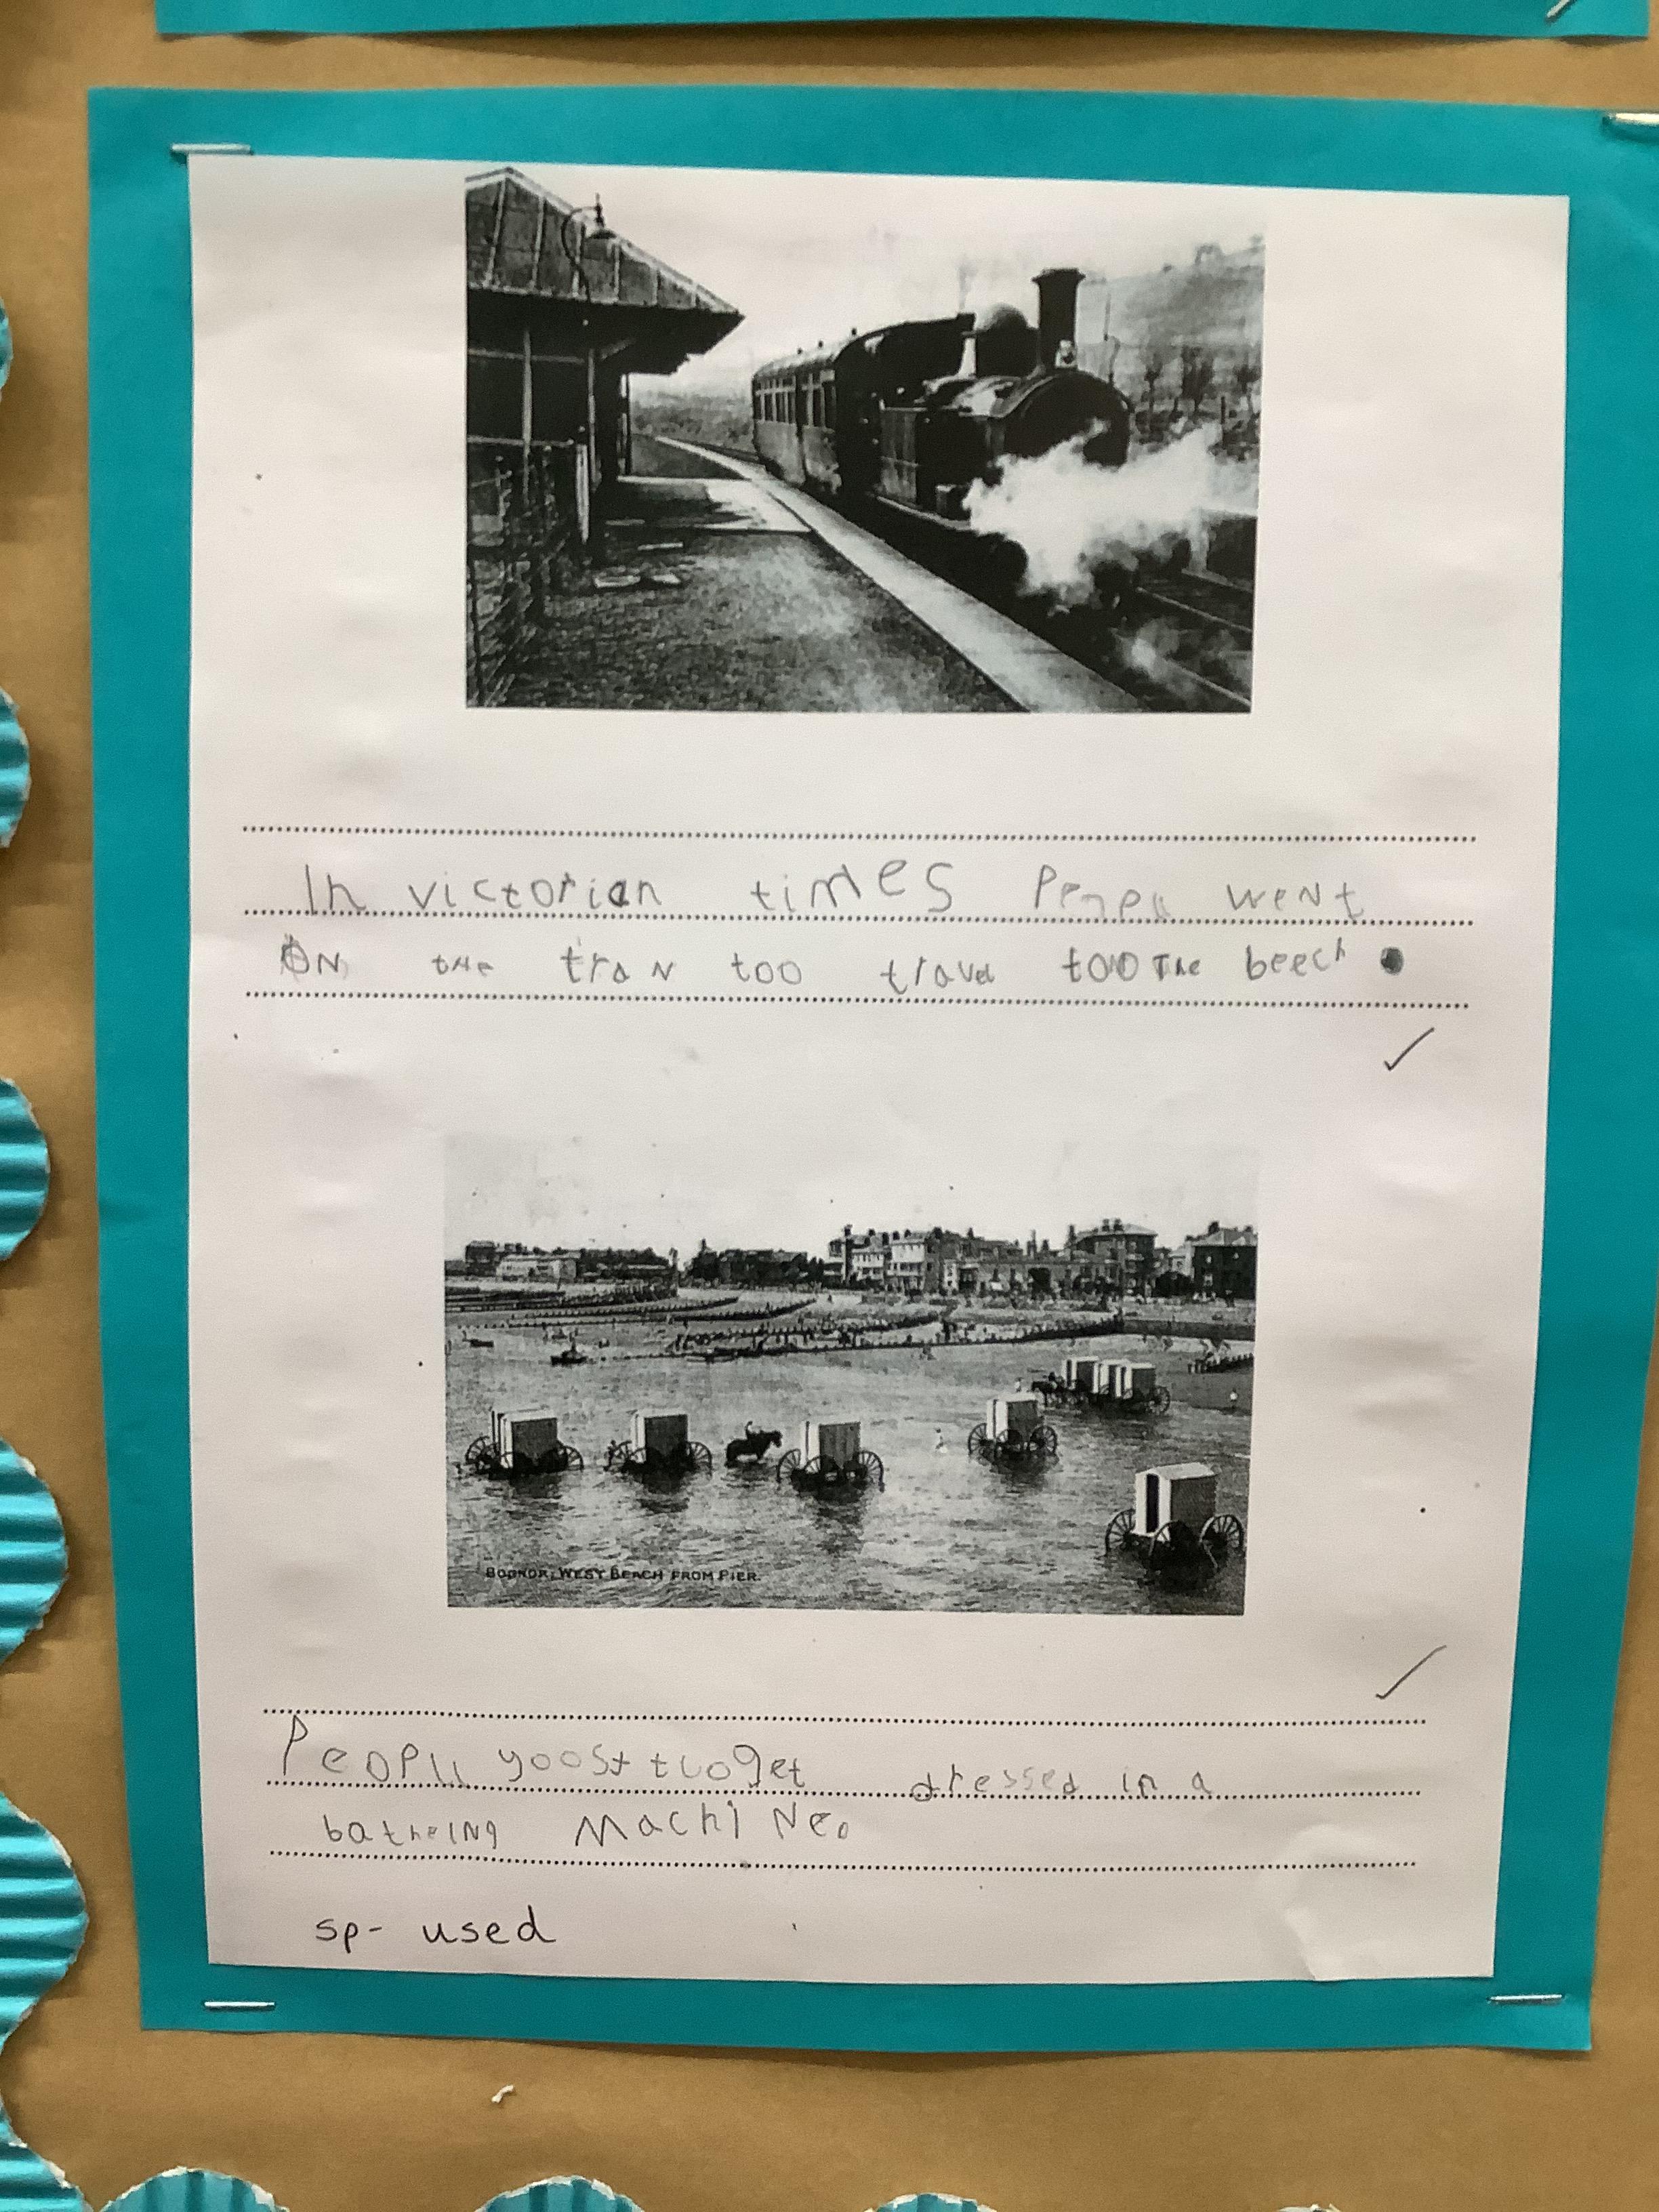 In victorian times Pepu went
ON the tran too travel too The beech.
BOGNOR, WEST BEACH FROM PIER.
Peopll yoost too get dressed in a
batheing Machi Ne.
sp- used